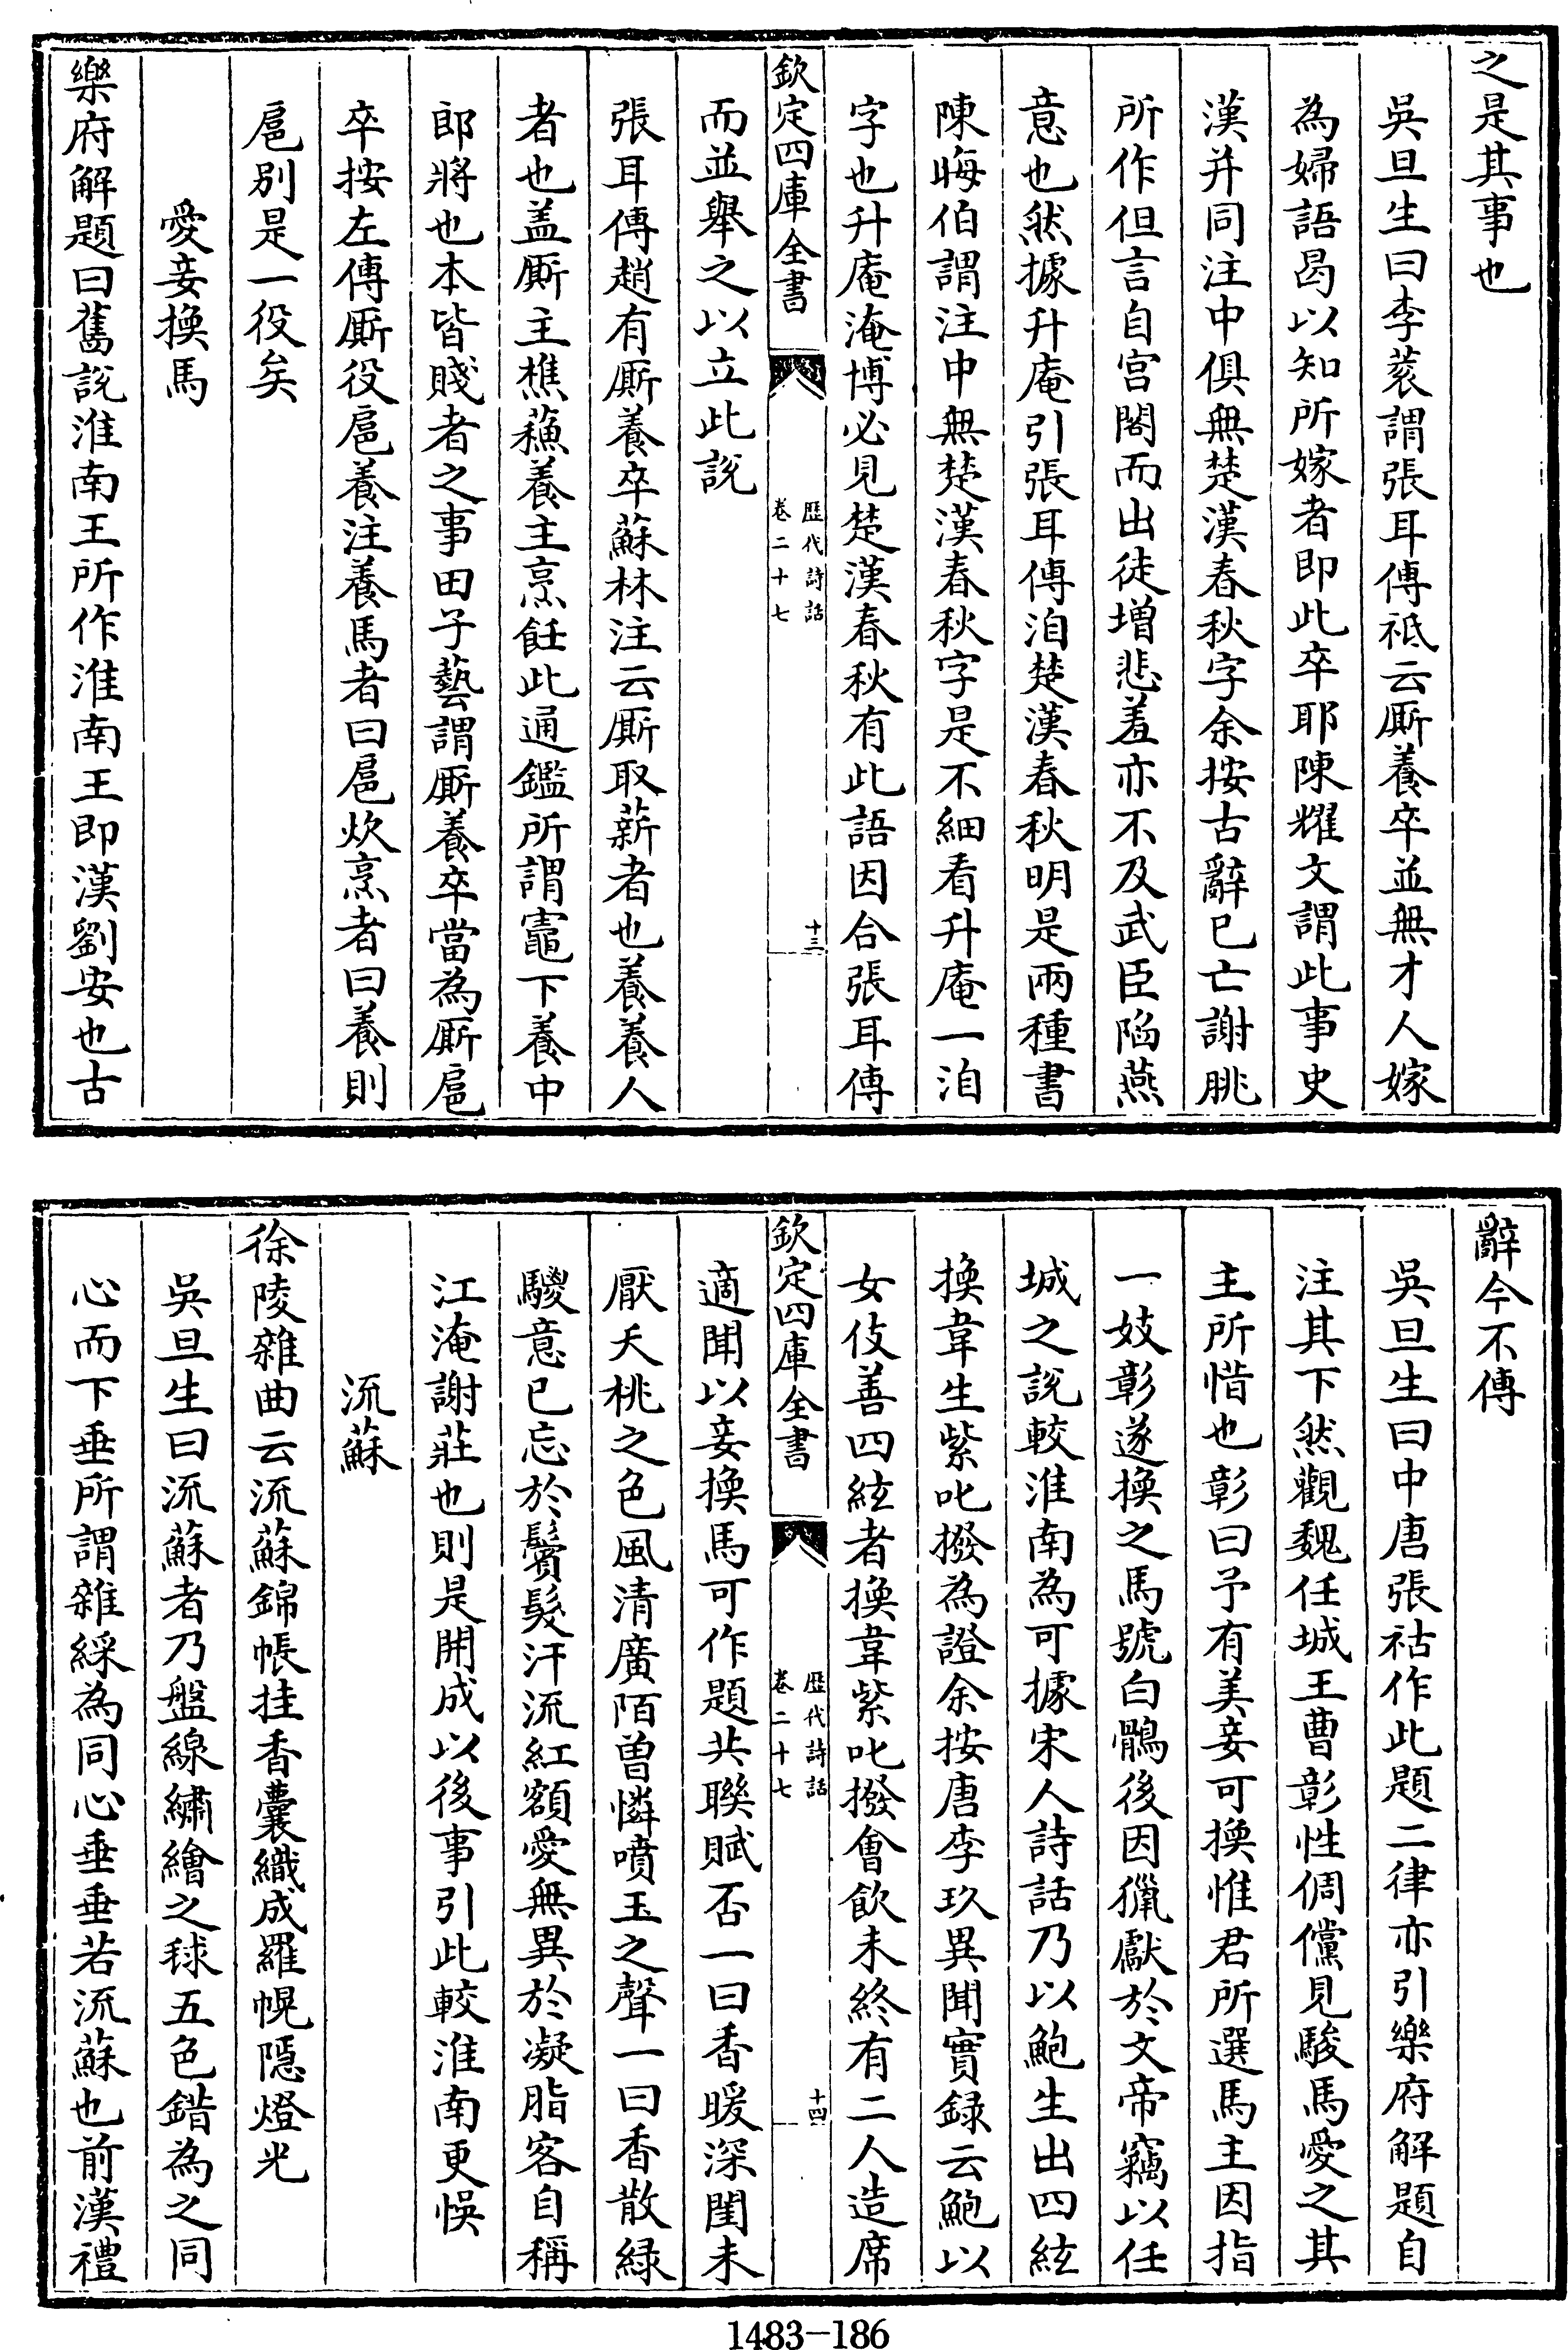 之是其事也
吳旦生曰李袠謂張耳傳祗云廝養卒並無才人嫁
為婦語曷以知所嫁者即此卒耶陳耀文謂此事史
漢并同注中俱無楚漢春秋字余按古辭已亡謝朓
所作但言自宫閣而出徒增悲羞亦不及武臣陷燕
意也然據升庵引張耳傳洎楚漢春秋明是兩種書
陳晦伯謂注中無楚漢春秋字是不細看升庵一洎
字也升庵淹博必見楚漢春秋有此語因合張耳傳
欽定四庫全書
歷代詩話
卷二十七
十三
而並舉之以立此說
張耳傳趙有廝養卒蘇林注云廝取薪者也養養人
者也盖廝主樵蘓養主烹飪此通鑑所謂竈下養中
郎將也本皆賤者之事田子藝謂廝養卒當為廝扈
卒按左傳廝役扈養注養馬者曰扈炊烹者曰養則
扈別是一役矣
愛妾換馬
樂府解題曰舊說淮南王所作淮南王即漢劉安也古
辭今不傳
吳旦生曰中唐張祜作此題二律亦引樂府解題自
注其下然觀魏任城王曹彰性倜儻見駿馬愛之其
主所惜也彰曰予有美妾可換惟君所選馬主因指
一妓彰遂換之馬號白鶻後因獵獻於文帝竊以任
城之說較淮南為可據宋人詩話乃以鮑生出四絃
換韋生紫叱撥為證余按唐李玖異聞實録云鮑以
女伎善四絃者換韋紫叱撥會飲未終有二人造席
欽定四庫全書
歷代詩話
卷二十七
十四
適聞以妾換馬可作題共聯賦否一曰香暖深閨未
厭夭桃之色風清廣陌曽憐噴玉之聲一曰香散綠
騣意已忘於鬢髮汗流紅額愛無異於凝脂客自稱
江淹謝莊也則是開成以後事引此較淮南更悞
流蘇
徐陵雜曲云流蘇錦帳挂香囊織成羅幌隱燈光
吳旦生曰流蘇者乃盤線繡繪之毬五色錯為之同
心而下垂所謂雜綵為同心垂垂若流蘇也前漢禮
1483-186